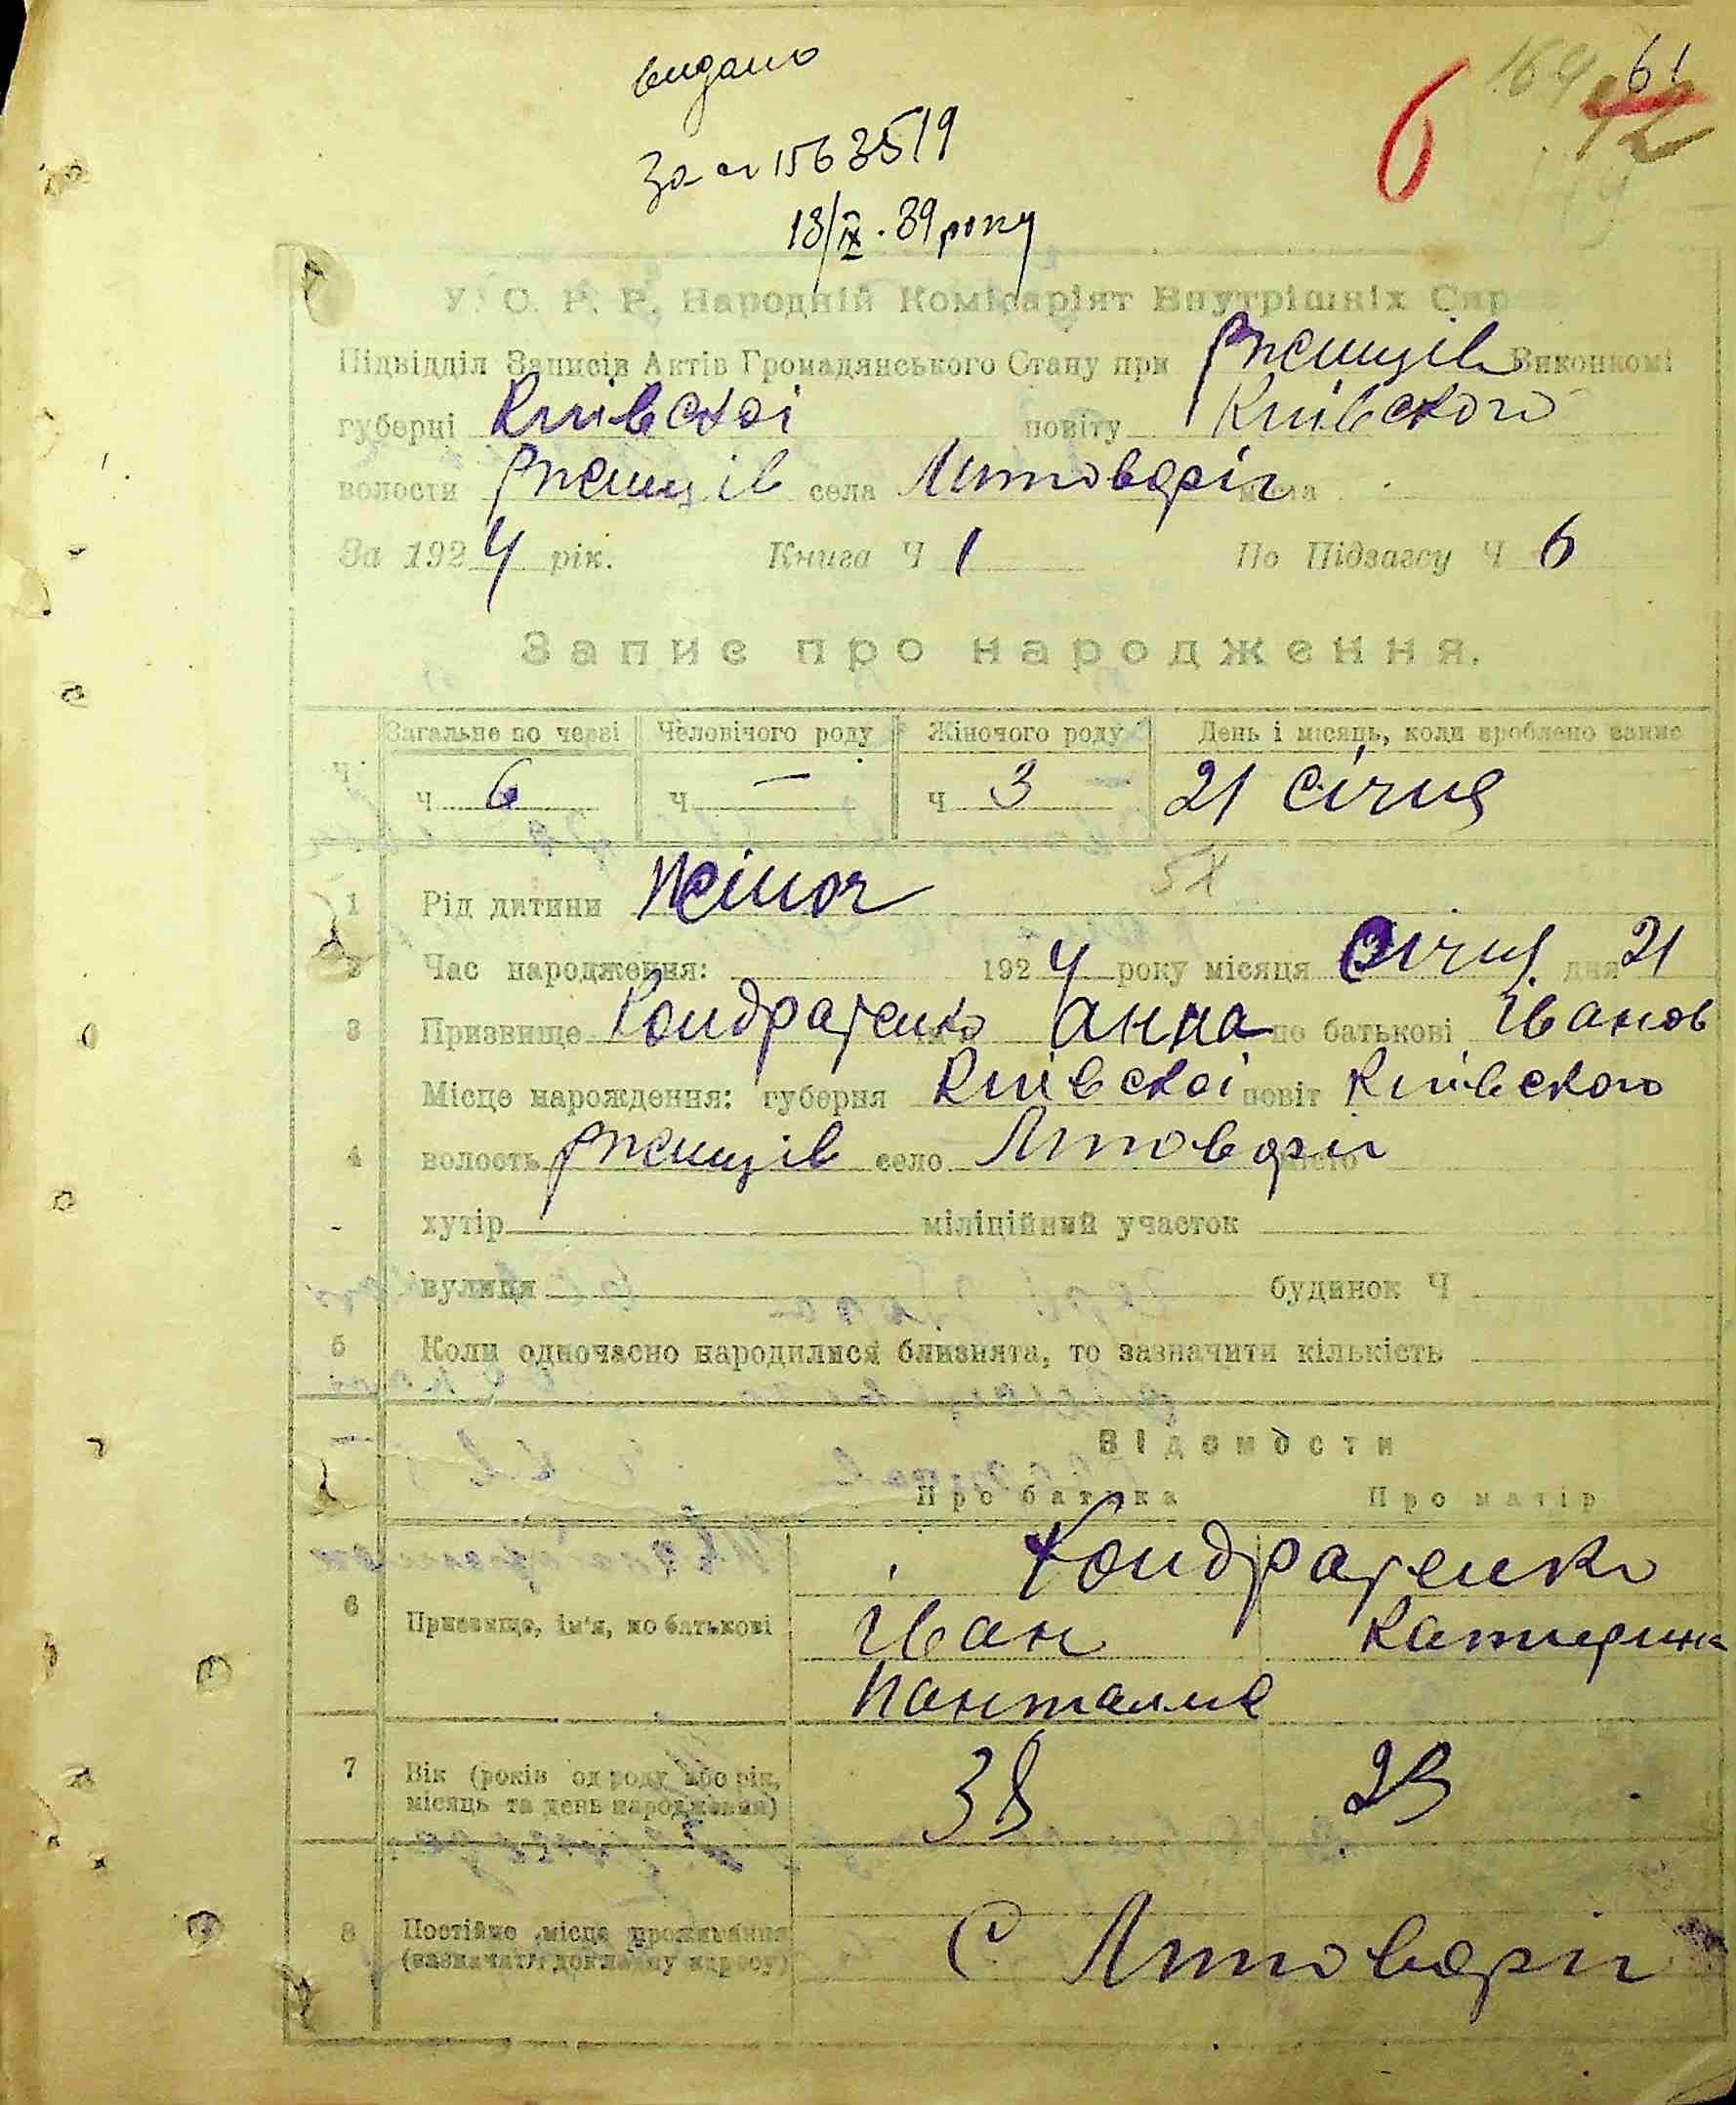 видано
За № 1563519
13/IX.39 року
6 164 61 12
У. С. Р. Р. Народній Комісаріят Внутрішніх Спр
Підвідділ Записів Актів Громадянського Стану при Ржищів Виконкомі
губерні Київскоі повіту Київского
волости Ржищів села Литовваріг
За 1924 рік. Книга Ч 1 По Підзагсу Ч 6
Запис про народження.
Загальне по черзі Человічого роду Жіночого роду День і місяць, коли зроблено запис
Ч 6 Ч — Ч 3 21 січня
1 Рід дитини жіноч
2 Час народження: 1924 року місяця січня дня 21
3 Призвище Кондратенко Анна по батькові Іванов
Місце народження: губерня Київскоі повіт Київского
4 волость Ржищів село
хутір міліційний участок
вулиця будинок Ч
5 Коли одночасно народилися близнята, то зазначити кількість
Відомости
Про батька Про матір
Кондратенко
6 Призвище, ім'я, по батькові Іван Катирина
7 Вік (років од роду або рік, 38 23
місяць та день народження)
8 Постійне місце проживання С
(зазначати докладну адресу)